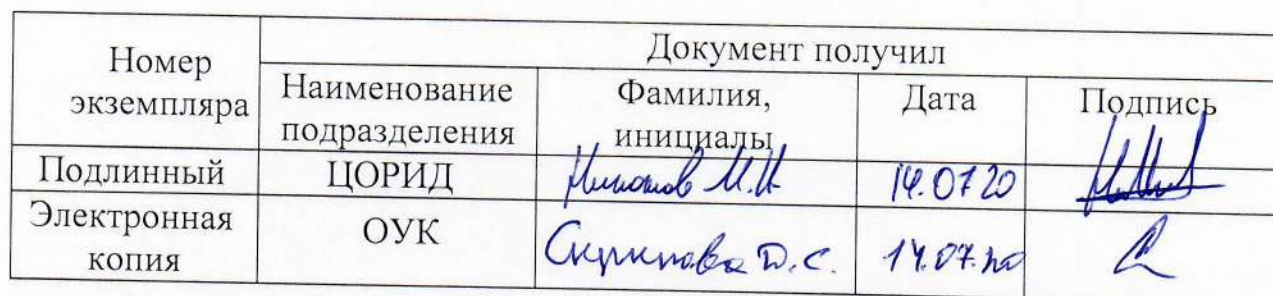 Номер экземпляра
Документ получил
Наименование подразделения
Фамилия, инициалы
Дата
Подпись
Подлинный
ЦОРИД
М.И.
14.07 20
Электронная копия
ОУК
Д.С.
14.07.20